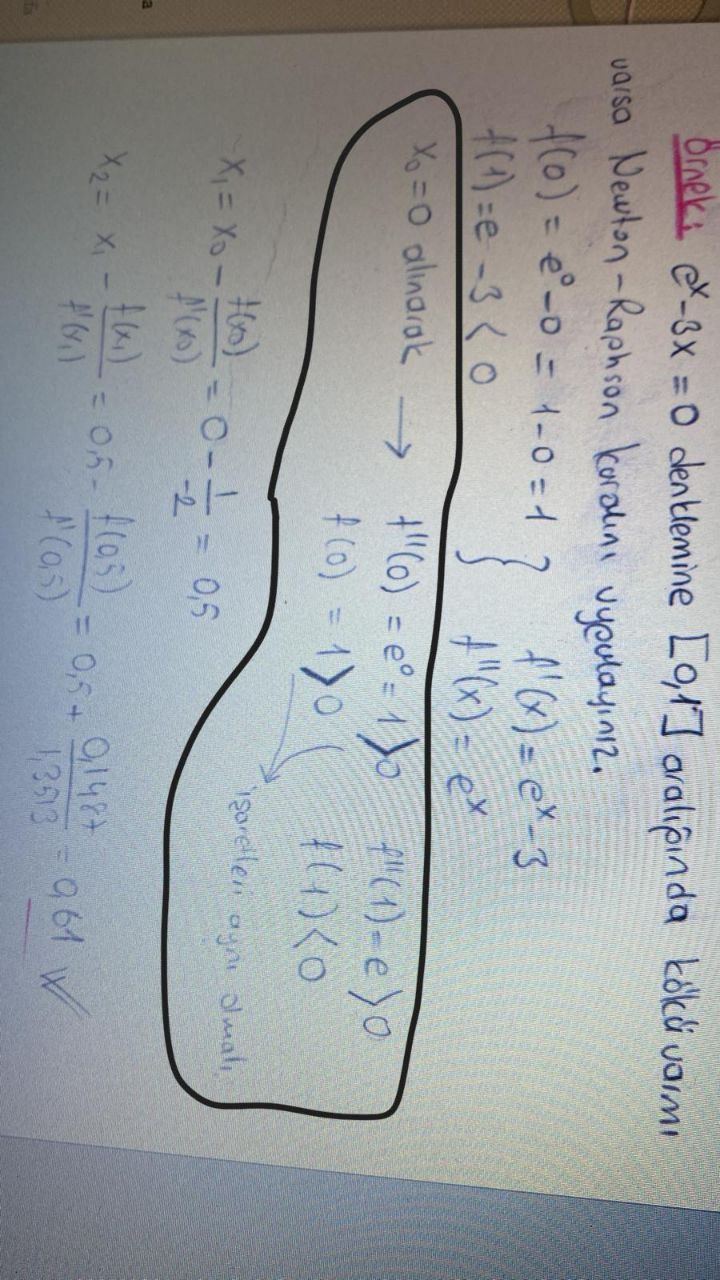 Örnek: e^x - 3x = 0 denklemine [0,1] aralığında kökü varmı
varsa Newton-Raphson kuralını uygulayınız.
f(0) = e^0 - 0 = 1 - 0 = 1 } f'(x) = e^x - 3
f(1) = e - 3 < 0 f''(x) = e^x
x₀ = 0 alınarak → f''(0) = e^0 = 1 > 0 f''(1) = e > 0
f(0) = 1 > 0 f(1) < 0
işaretleri aynı olmalı.
x₁ = x₀ - f(x₀)/f'(x₀) = 0 - 1/-2 = 0,5
x₂ = x₁ - f(x₁)/f'(x₁) = 0,5 - f(0,5)/f'(0,5) = 0,5 + 0,1487/1,3513 = 0,61